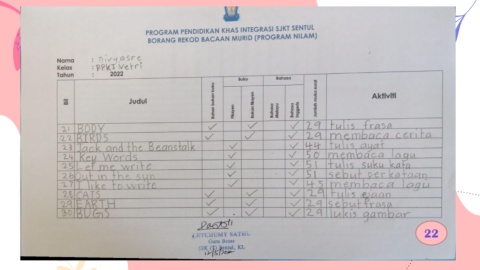 PROGRAM PENDIDIKAN KHAS INTEGRASI SJKT SENTUL
BORANG REKOD BACAAN MURID (PROGRAM NILAM)
Nama :
Kelas : PPKI Vetri
Tahun : 2022
Bil Judul Bahan bukan buku Buku Fiksyen Bukan fiksyen Bahasa Bahasa Melayu Bahasa Inggeris Aktiviti
21 BODY ✓ ✓ ✓ 29 tulis frasa
22 BIRDS ✓ ✓ ✓ 29 membaca cerita
23 Jack and the Beanstalk ✓ ✓ 44 tulis ayat
24 Key Words ✓ ✓ 50 membaca lagu
25 Let me write ✓ ✓ 51 tulis suku kata
26 Out in the sun ✓ ✓ 51 sebut perkataan
27 I like to write ✓ ✓ 45 membaca lagu
28 CATS ✓ ✓ ✓ 29 tulis ejaan
29 EARTH ✓ ✓ ✓ 29 sebut frasa
30 BUGS ✓ ✓ ✓ 29 lukis gambar
Guru Besar
22